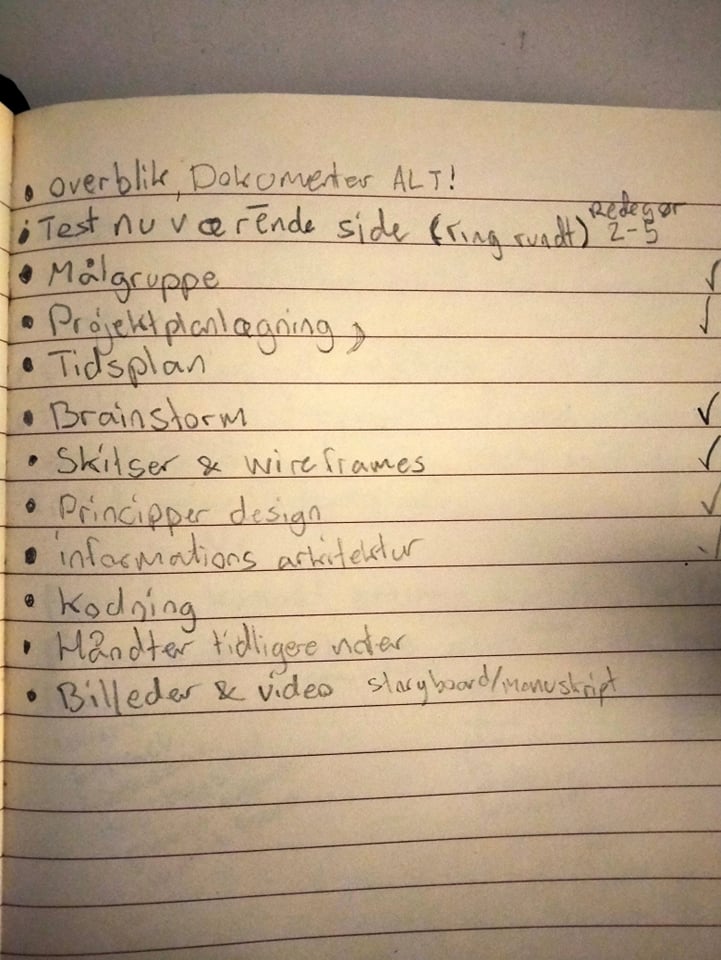 • overblik, Dokumenter ALT!
• Test nuværende side (ring rundt) Redegør 2-5
• Målgruppe ✓
• Projektplanlægning ✓
• Tidsplan
• Brainstorm ✓
• Skitser & wireframes ✓
• Principper design ✓
• informations arkitektur ✓
• Kodning
• Håndter tidligere noter
• Billeder & video storyboard/manuskript